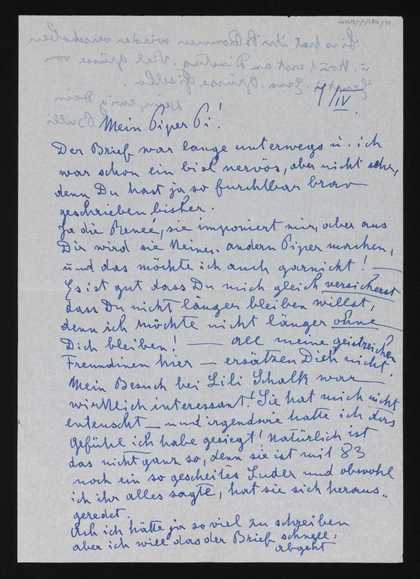 7/IV.
Mein Piper Pi!
Der Brief war lange unterwegs u. ich
war schon ein bisl nervös, aber nicht sehr,
denn Du hast ja so furchtbar brav
geschrieben bisher.
Ja die Renee, sie imponiert mir, aber aus
Dir wird sie keinen andern Piper machen,
und das möchte ich auch garnicht! —
Es ist gut dass Du mich gleich versicherst
dass Du nicht länger bleiben willst,
denn ich möchte nicht länger ohne
Dich bleiben! — all meine geistreichen
Freundinen hier — ersätzen Dich nicht!
Mein Besuch bei Lili Schalk war
wirklich interessant! Sie hat mich nicht
enteuscht — und irgendwie hatte ich das
Gefühl ich habe gesiegt! Natürlich ist
das nicht ganz so, denn sie ist mit 83
noch ein so gescheites Luder und obwohl
ich ihr alles sagte, hat sie sich heraus„
geredet.
Ach ich hätte ja so viel zu schreiben
aber ich will dass der Brief schnell
abgeht